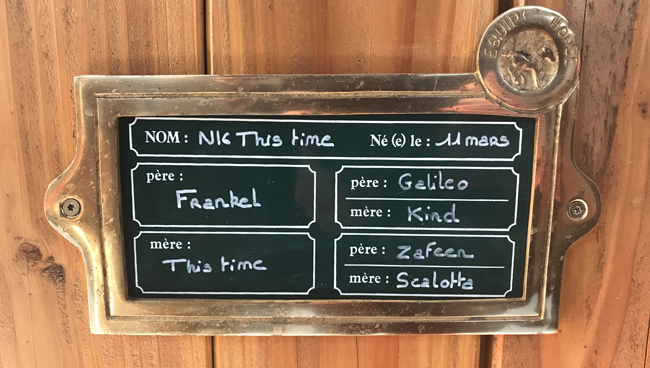 EQUIP'HORSE
NOM : NK This time Né (e) le : 11 mars
père :
Frankel
père : Galileo
mère : Kind
mère :
This time
père : Zafeen
mère : Scalotta